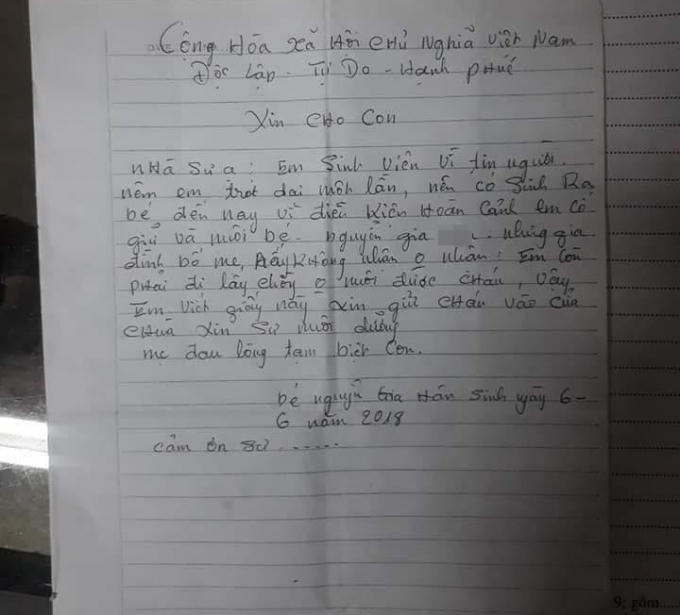 Cộng Hòa Xã Hội Chủ Nghĩa Việt Nam
Độc Lập - Tự Do - Hạnh Phúc
Xin Cho Con
Nhà Sư ạ: Em Sinh Viên Vì tin người.
nêm em trót dại một lần, nên có Sinh Ra
bé đến nay vì điều kiện Hoàn Cảnh em cố
giữ và nuôi bé. Nguyễn gia nhưng gia
đình bố mẹ, Ấy Không nhân o nhân: Em Còn
Phải đi lấy chồng o nuôi được cháu, vậy
Em viết giấy này xin gửi cháu vào cửa
chùa xin sư nuôi dưỡng
mẹ đau lòng tạm biệt con.
bé nguyễn Gia Hân Sinh ngày 6-
6 năm 2018
cảm ơn sư ......
9; gồm.....